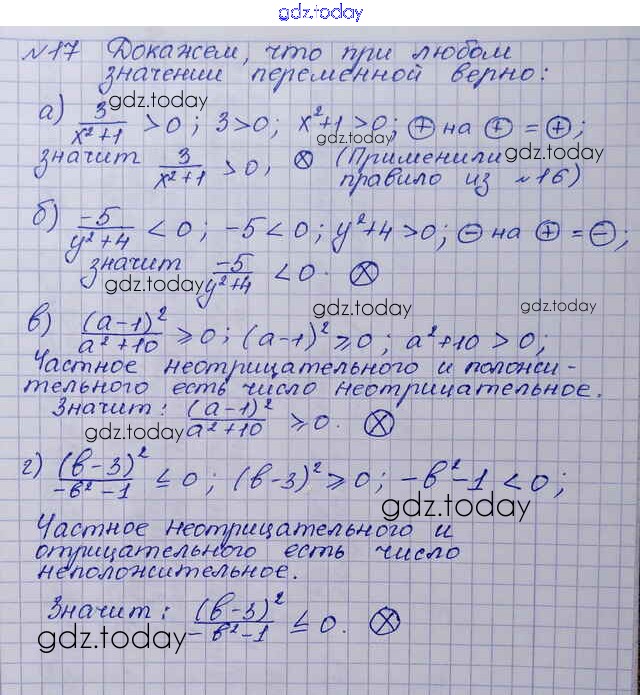 gdz.today
№17 Докажем, что при любом
значении переменной верно:
а) 3/(x²+1) > 0; 3>0; x²+1>0; ⊕ на ⊕ = ⊕;
gdz.today
gdz.today
значит 3/(x²+1) > 0, ⊗ (Применили
gdz.today
gdz.today
правило из №16)
б) -5/(y²+4) < 0; -5<0; y²+4>0; ⊖ на ⊕ = ⊖;
значит -5/(y²+4) < 0. ⊗
gdz.today
gdz.today
gdz.today
в) (a-1)²/(a²+10) ≥ 0; (a-1)² ≥ 0; a²+10 > 0;
Частное неотрицательного и положи-
тельного есть число неотрицательное.
Значит: (a-1)²/(a²+10) ≥ 0. ⊗
gdz.today
г) (b-3)²/(-b²-1) ≤ 0; (b-3)² ≥ 0; -b²-1 < 0;
gdz.today
Частное неотрицательного и
отрицательного есть число
неположительное.
Значит: (b-3)²/(-b²-1) ≤ 0. ⊗
gdz.today